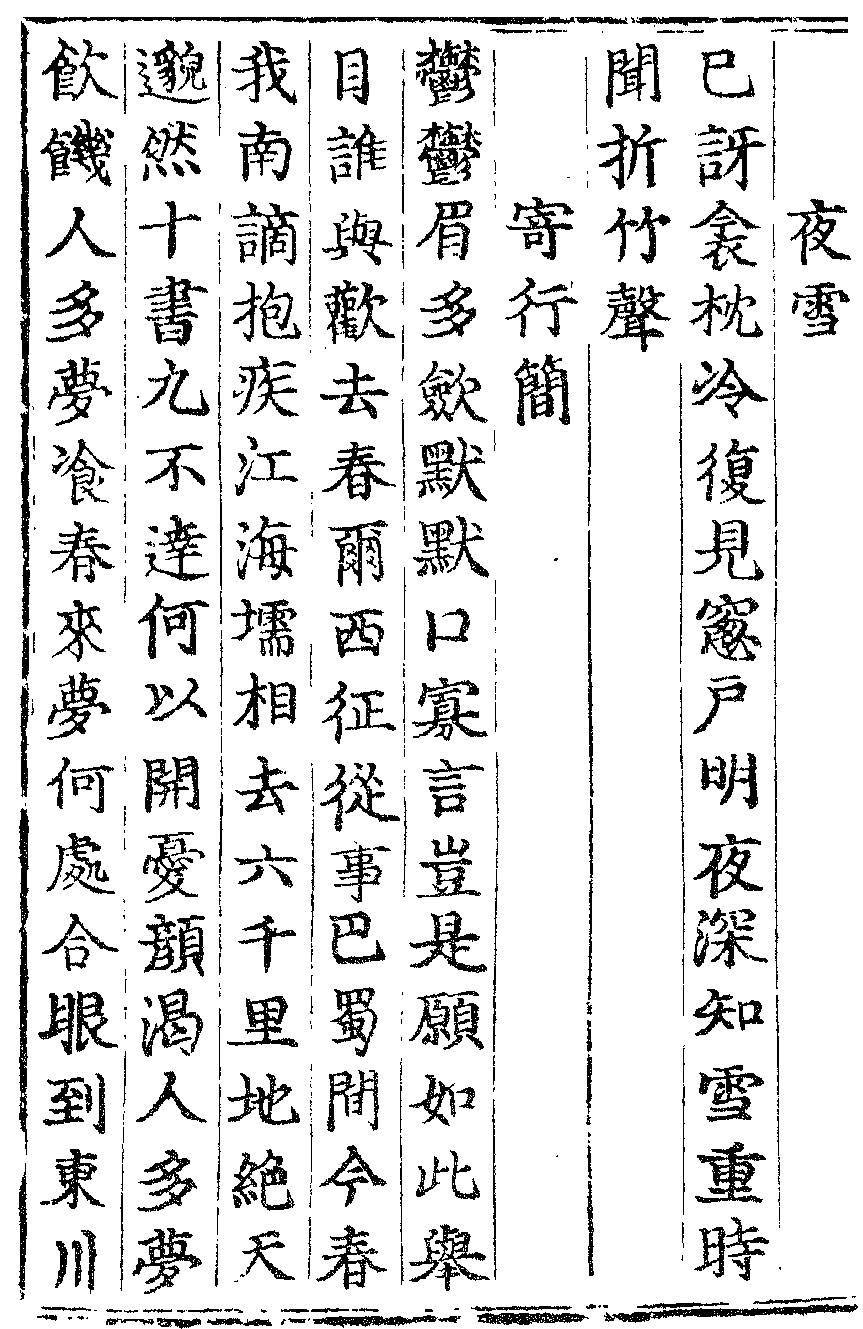 夜雪
已訝衾枕冷復見窻戶明夜深知雪重時
聞折竹聲
寄行簡
鬱鬱眉多歛默默口寡言豈是願如此舉
目誰與歡去春爾西征從事巴蜀間今春
我南謫抱疾江海壖相去六千里地絕天
邈然十書九不達何以開憂顔渴人多夢
飲饑人多夢飡春來夢何處合眼到東川